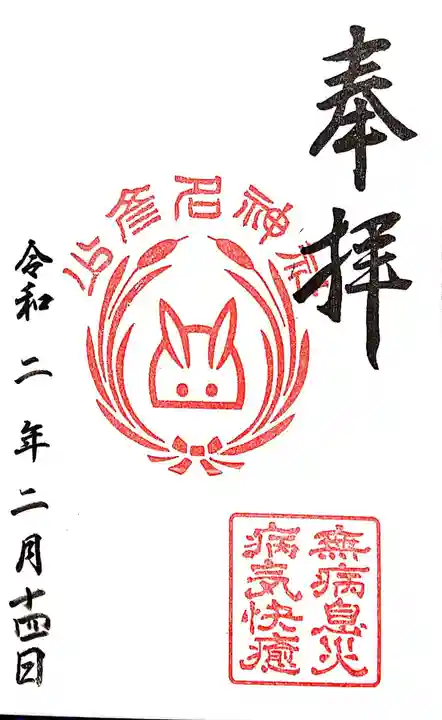 奉拝
少彦名神社
令和二年二月十四日
無病息災
病気快癒